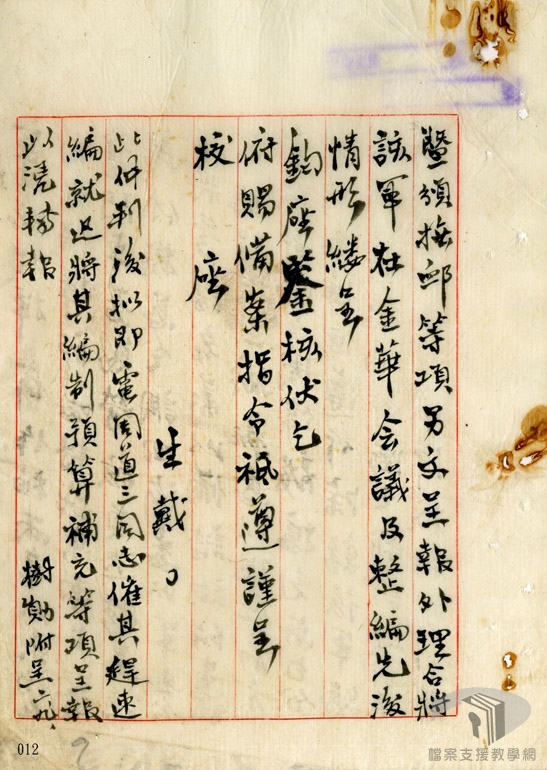 暨頒撫卹等項另文呈報外理合將
該軍在金華会議及整編先後
情形縷呈
鈞座鑒核伏乞
俯賜備案指令祗遵謹呈
校座
生戴
此件到後拟即電周道三同志催其趕速
編就迅將其編制預算補充等項呈報
以凭轉報
樹勛附呈
012
檔案支援教學網